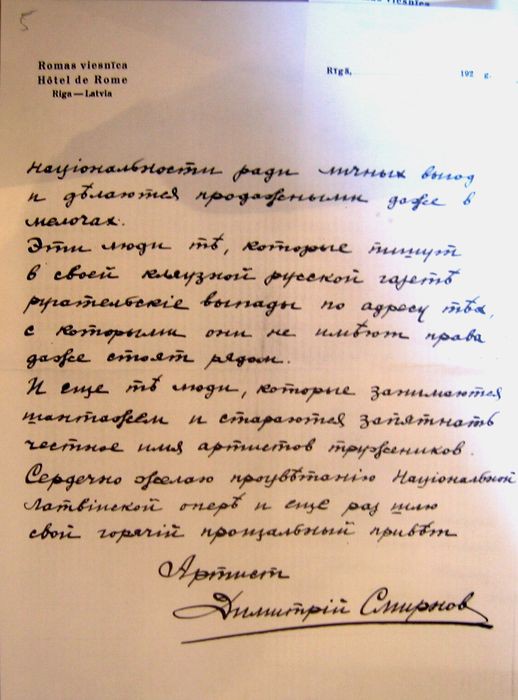 5
Romas viesnīca
Hôtel de Rome
Riga — Latvia
Rīgā, 192 g.
національности ради личных выгод
и дѣлаются продажными даже в
мелочах.
Эти люди тѣ, которые пишут
в своей кляузной русской газетѣ
ругательскіе выпады по адресу тѣх,
с которыми они не имѣют права
даже стоят рядом.
И еще тѣ люди, которые занимаются
шантажем и стараются запятнать
честное имя артистов тружеников.
Сердечно желаю процвѣтанію Національной
Латвійской оперѣ и еще раз шлю
свой горячій прощальный привѣт
Артист
Димитрій Смирнов